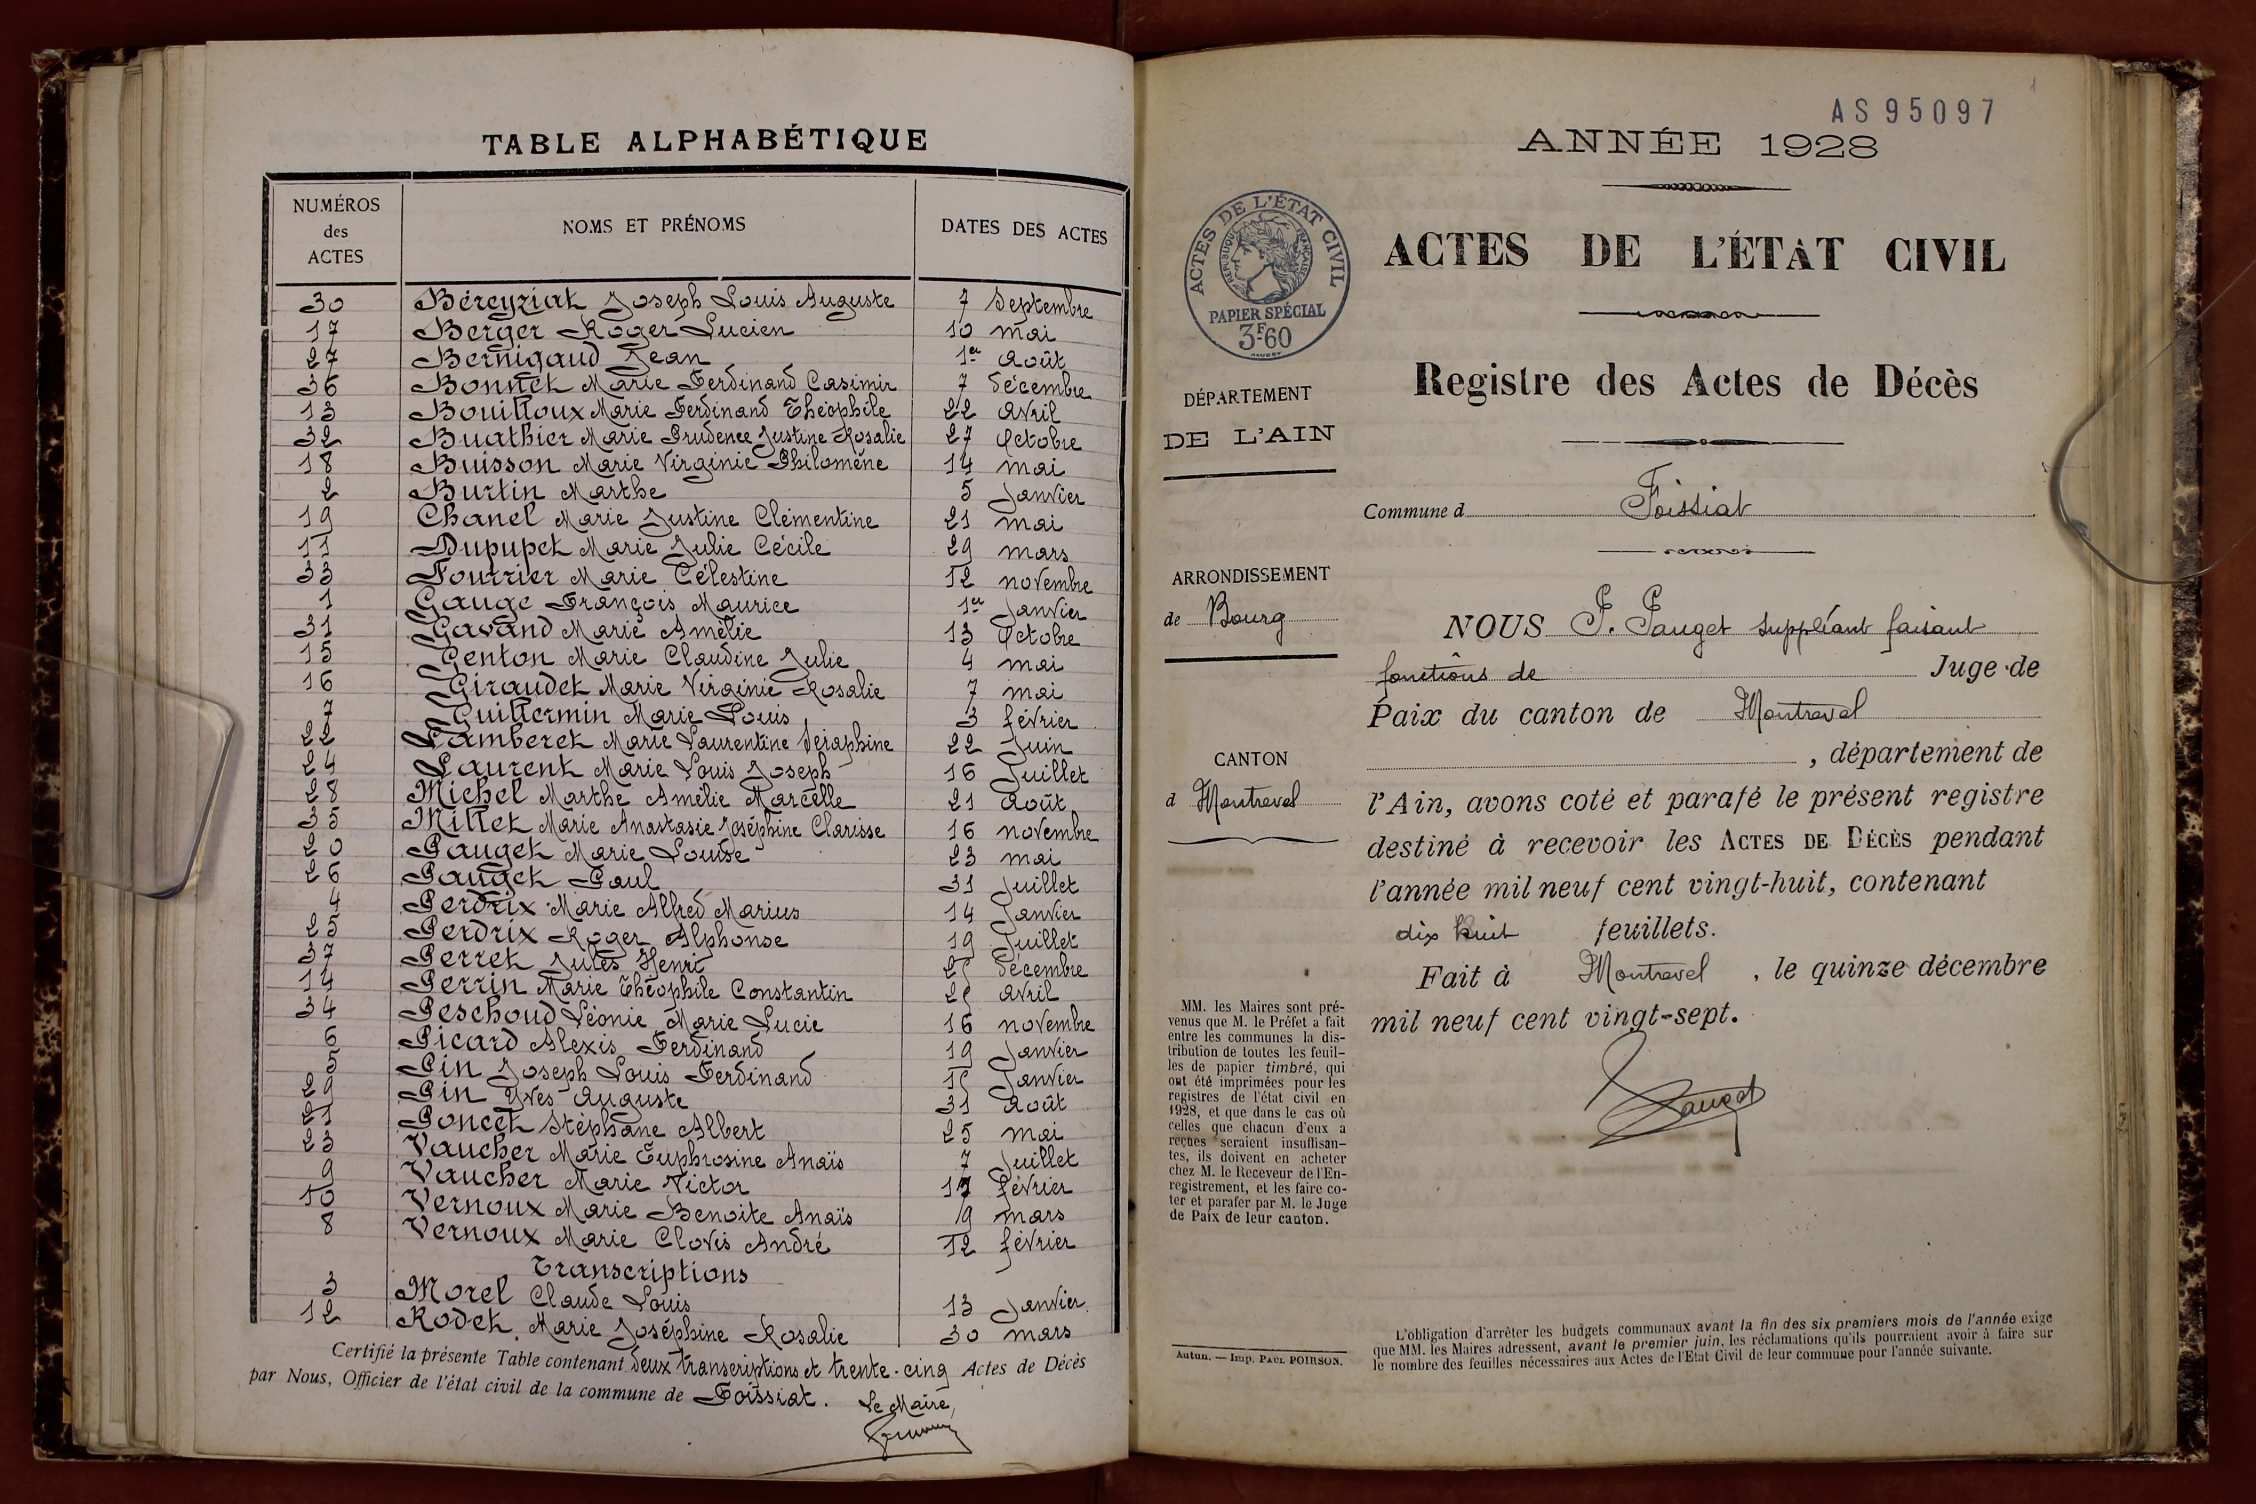 TABLE ALPHABÉTIQUE
NUMÉROS des ACTES NOMS ET PRÉNOMS DATES DES ACTES
30 Béreyziat Joseph Louis Auguste 7 Septembre
17 Berger Roger Lucien 10 mai
27 Bernigaud Jean 1er Août
36 Bonnet Marie Ferdinand Casimir 7 Décembre
13 Bouilloux Marie Ferdinand Théophile 22 Avril
32 Buathier Marie Prudence Justine Rosalie 27 Octobre
18 Buisson Marie Virginie Philomène 14 mai
2 Burtin Marthe 5 Janvier
19 Chanel Marie Justine Clémentine 21 mai
11 Dupupet Marie Julie Cécile 29 mars
33 Fourrier Marie Célestine 12 novembre
1 Gauge François Maurice 1er Janvier
31 Gavand Marie Amélie 13 Octobre
15 Genton Marie Claudine Julie 4 mai
16 Giraudet Marie Virginie Rosalie 7 mai
7 Guillermin Marie Louis 3 février
22 Lamberet Marie Laurentine Séraphine 22 Juin
24 Laurent Marie Louis Joseph 16 Juillet
28 Michel Marthe Amélie Marcelle 21 Août
35 Millet Marie Anastasie Joséphine Clarisse 16 novembre
20 Pauget Marie Louise 23 mai
26 Pauget Paul 31 Juillet
4 Perdrix Marie Alfred Marius 14 Janvier
25 Perdrix Roger Alphonse 19 Juillet
37 Perret Jules Henri Décembre
14 Perrin Marie Théophile Constantin Avril
34 Peschoud Léonie Marie Lucie 16 novembre
6 Picard Alexis Ferdinand 19 Janvier
5 Pin Joseph Louis Ferdinand Janvier
29 Pin Yves Auguste 31 Août
21 Poncet Stéphane Albert 25 mai
23 Vaucher Marie Euphrosine Anaïs 7 Juillet
9 Vaucher Marie Victor février
10 Vernoux Marie Benoite Anaïs 9 mars
8 Vernoux Marie Clovis André 12 février
Transcriptions
3 Morel Claude Louis 13 Janvier
12 Rodet Marie Joséphine Rosalie 30 mars
Certifié la présente Table contenant deux transcriptions et trente-cinq Actes de Décès
par Nous, Officier de l'état civil de la commune de Foissiat.
Le Maire,
AS95097
ANNÉE 1928
ACTES DE L'ÉTAT CIVIL
RÉPUBLIQUE FRANÇAISE
PAPIER SPÉCIAL
3F60
ACTES DE L'ÉTAT CIVIL
Registre des Actes de Décès
DÉPARTEMENT
DE L'AIN
Commune d Foissiat
ARRONDISSEMENT
de Bourg
CANTON
d Montrevel
NOUS P. Pauget suppléant faisant
fonctions de Juge de
Paix du canton de Montrevel
, département de
l'Ain, avons coté et parafé le présent registre
destiné à recevoir les ACTES DE DÉCÈS pendant
l'année mil neuf cent vingt-huit, contenant
dix huit feuillets.
Fait à Montrevel , le quinze décembre
mil neuf cent vingt-sept.
Pauget
MM. les Maires sont pré-
venus que M. le Préfet a fait
entre les communes la dis-
tribution de toutes les feuil-
les de papier timbré, qui
ont été imprimées pour les
registres de l'état civil en
1928, et que dans le cas où
celles que chacun d'eux a
reçues seraient insuffisan-
tes, ils doivent en acheter
chez M. le Receveur de l'En-
registrement, et les faire co-
ter et parafer par M. le Juge
de Paix de leur canton.
Autun. — Imp. PAUL POIRSON.
L'obligation d'arrêter les budgets communaux avant la fin des six premiers mois de l'année exige
que MM. les Maires adressent, avant le premier juin, les réclamations qu'ils pourraient avoir à faire sur
le nombre des feuilles nécessaires aux Actes de l'Etat Civil de leur commune pour l'année suivante.